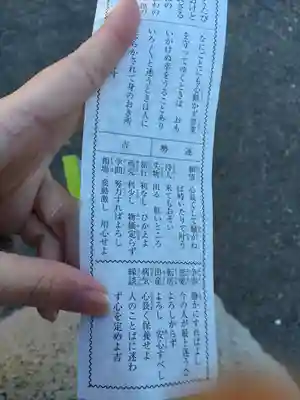 なにごとにも心動かず職業
を守ってゆくときは おも
いがけぬ幸をうることあり
いろ〱と迷うときは人に
かされて身のおき所
吉
運勢
願望
心長くして騒がね
ば時いたりて叶う
待人 来てもおそい
失物 出る 低いところ
旅行 利なし ひかえよ
商売 利少し 物価定らず
学問 努力すればよろし
相場 変動激し 用心せよ
争事 静かにすればよし
恋愛 今の人が最上 迷うな
転居 よろしからず
出産 よろし 安心すべし
病気 心長く保養せよ
縁談 人のことばに迷わ
ず心を定めよ吉